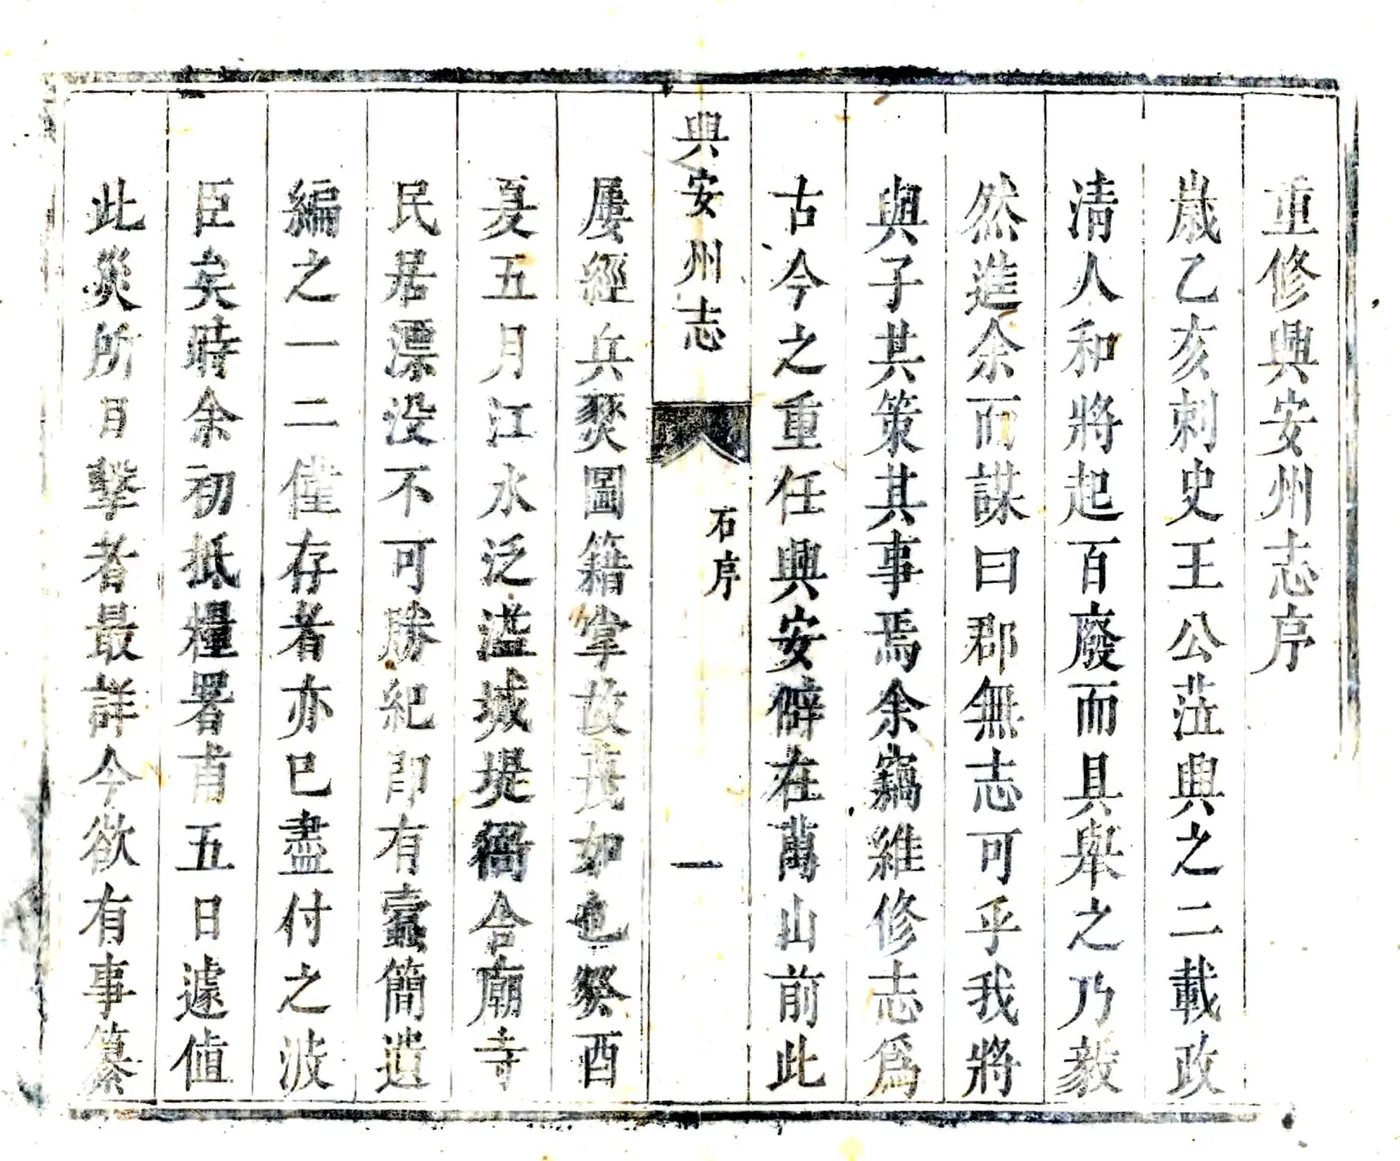 重修興安州志序
歲乙亥刺史王公蒞興之二載政
清人和將起百廢而具舉之乃毅
然進余而謀曰郡無志可乎我將
與子其策其事焉余竊維修志爲
古今之重任興安僻在萬山前此
興安州志
石序
一
屢經兵燹圖籍掌故喪如也癸酉
夏五月江水泛溢城堤衙舍廟寺
民居漂没不可勝紀即有蠹簡遺
編之一二僅存者亦已盡付之波
臣矣時余初抵糧署甫五日遽值
此災所目擊者最詳今欲有事纂